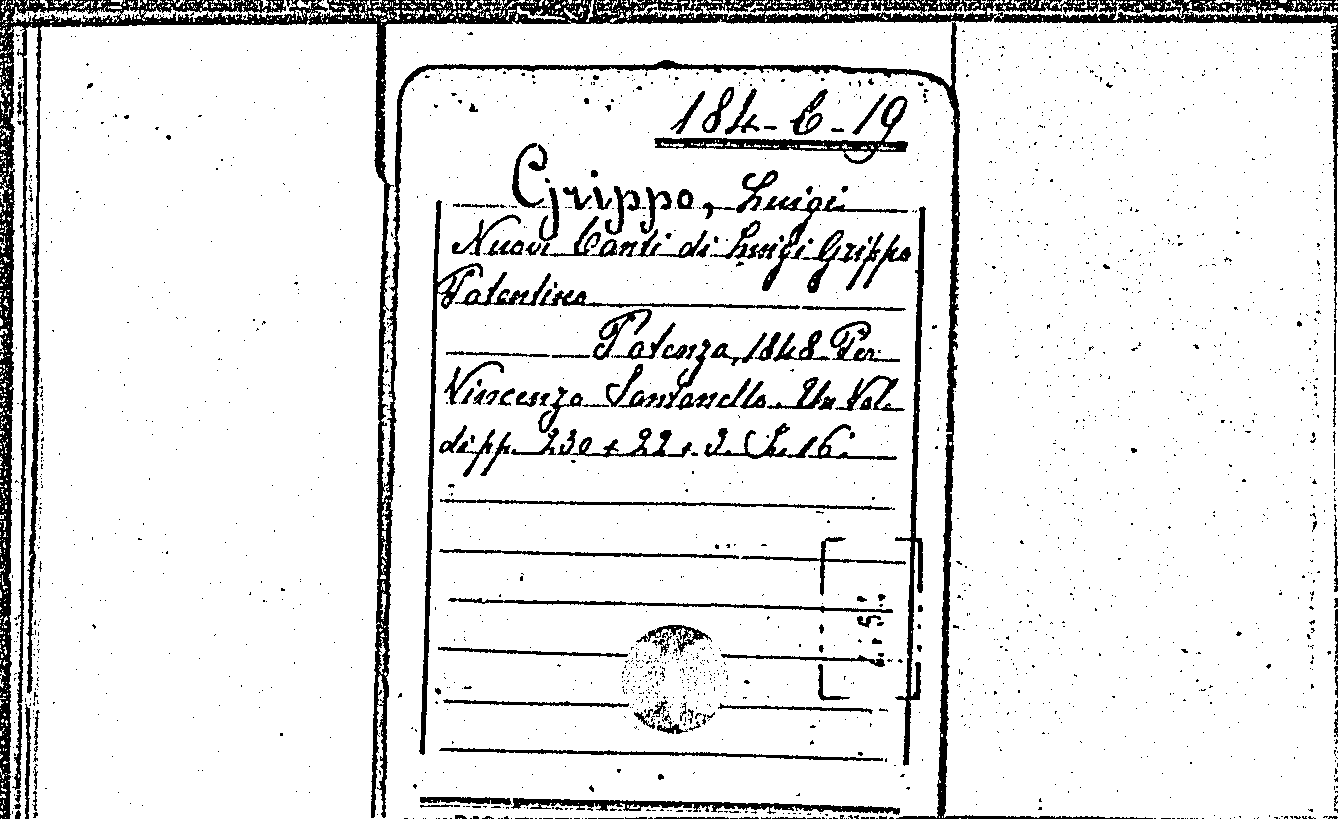 184-C-19
Grippo, Luigi
Nuovi Canti di Luigi Grippo
Potentino
Potenza, 1848. Per
Vincenzo Santanello. Un Vol.
di pp. 230 + 22 + 3. In 16.